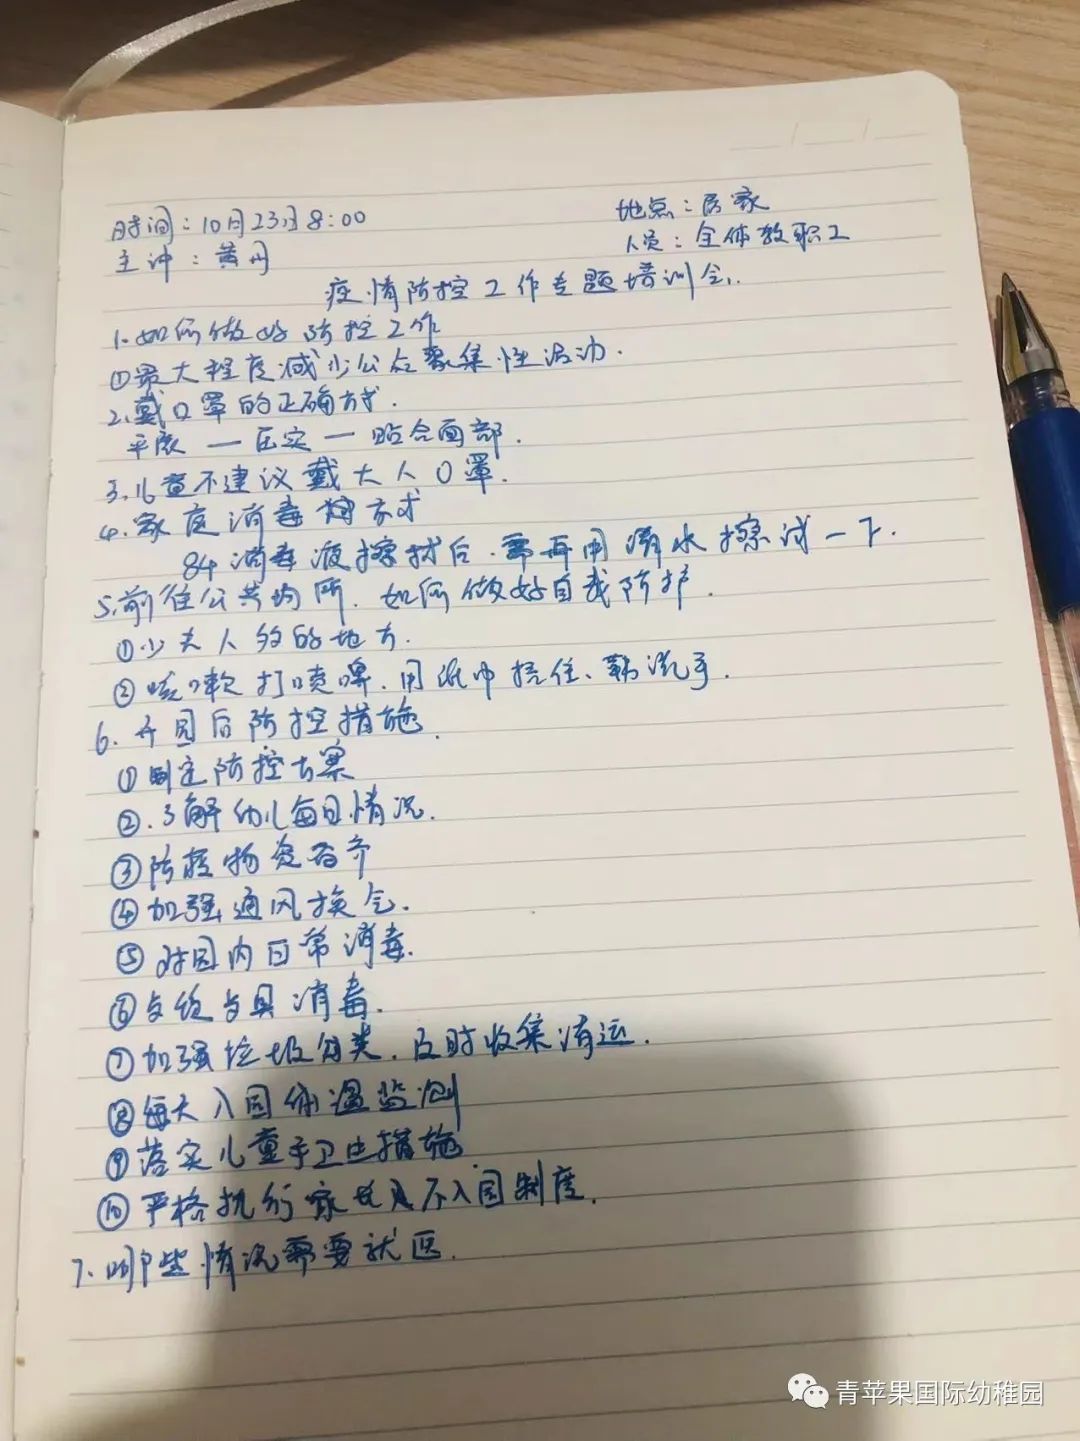 时间：10月23日8:00
地点：居家
主讲：黄丹
人员：全体教职工
疫情防控工作专题培训会.
1.如何做好防控工作
①最大程度减少公众聚集性活动.
2.戴口罩的正确方式.
平展一压实一贴合面部.
3.儿童不建议戴大人口罩.
4.家庭消毒方式
84消毒液擦拭后.需再用清水擦试一下.
5.前往公共场所.如何做好自我防护.
①少去人多的地方.
②咳嗽打喷嚏.用纸巾捂住、勤洗手.
6.开园后防控措施.
①制定防控方案
②.了解幼儿每日情况.
③防控物资备齐
④加强通风换气.
⑤对园内日常消毒.
⑥ 消毒.
⑦加强垃圾分类.及时收集清运.
⑧每天入园体温监测
⑨落实儿童手卫生措施
⑩严格执行家长不入园制度.
7.哪些情况需要就医.
青苹果国际幼稚园